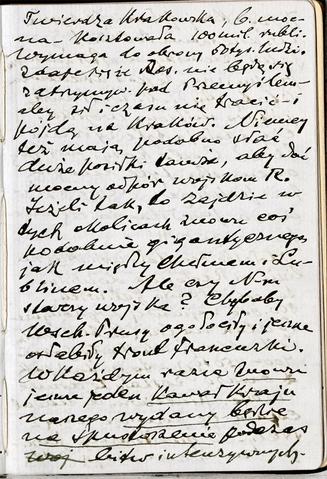 Twierdza Krakowska, b. moc-
na. Kosztowała 100 mil. rubli.
Wymaga do obrony 60 tys. ludzi.
Zdaje się że Ros. nie będą się
zatrzymyw. pod Przemyślem-
aby sił i czasu nie tracić - i
pójdą na Kraków. Niemcy
też mają, podobno słać
duże posiłki tamże, aby dać
mocny odpór wojskom R.
Jeżeli tak, to zajdzie w
tych okolicach znowu coś
podobnie gigantycznego
jak między Chełmem i Lu-
blinem. Ale czy Niem.
starczy wojska? Chybaby
Wsch. Prusy ogołocili i jeszcze
osłabili front francuski.
W każdym razie znowu
jeszcze jeden kawał kraju
naszego wydany będzie
na spustoszenie podczas
bitew intenzywnych.